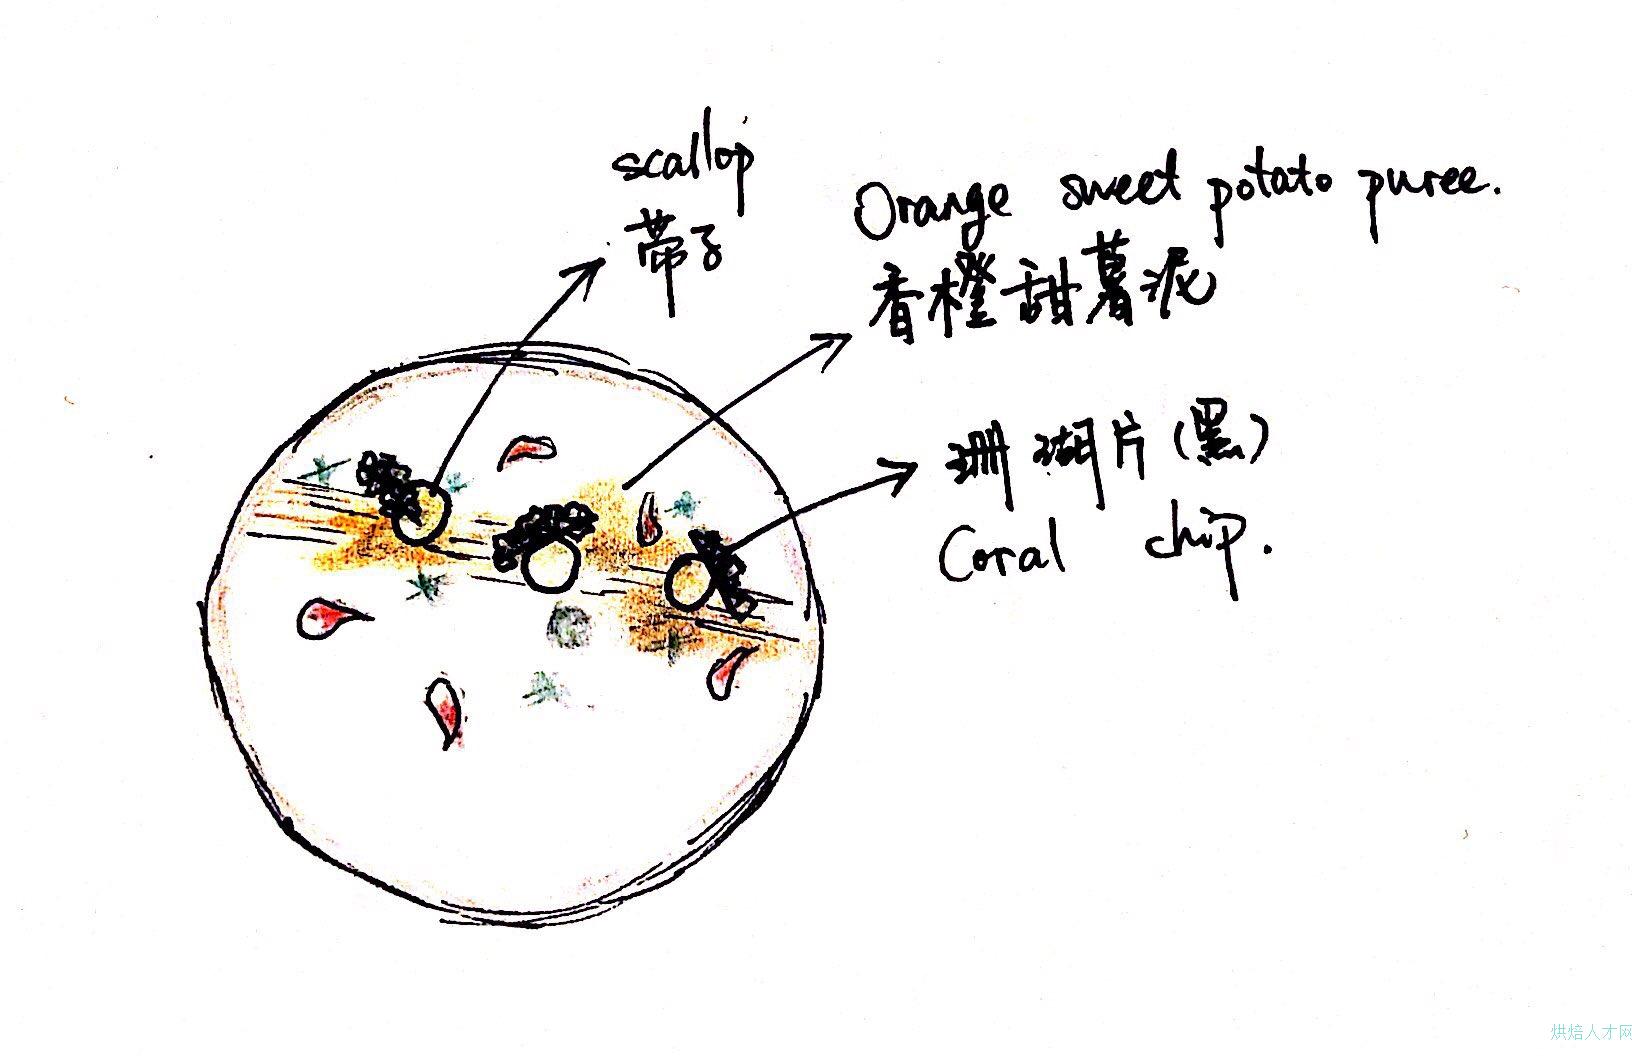 scallop
带子
Orange sweet potato puree.
香橙甜薯泥
珊瑚片(黑)
Coral chip.
烘焙人才网